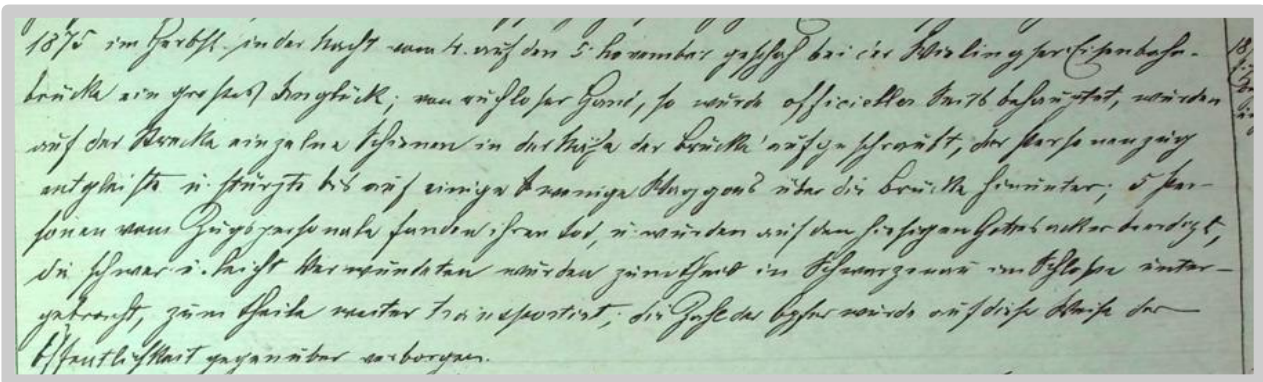 1875 im Herbst in der Nacht vom 4. auf den 5. November geschah bei der Wielingser Eisenbahn-
brücke ein großes Unglück; von ruchloser Hand, so wurde officieller Seits behauptet, wurden
auf der Strecke einzelne Schienen in der Nähe der Brücke aufgeschraubt, der Personenzug
entgleiste u. stürzte bis auf einige wenige Waggons über die Brücke hinunter; 5 Per-
sonen vom Zugspersonale fanden ihren Tod, u. wurden auf den hiesigen Gottesacker beerdigt,
die schwer u. leicht Verwundeten wurden zum Theil in Schwarzenau im Schloße unter-
gebracht, zum Theile weiter transportirt; die Zahl der Opfer wurde auf diese Weise der
Öffentlichkeit gegenüber verborgen.